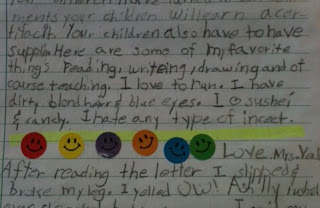 ments your children will earn a cer-
tificate. Your children also have to have
supplies. Here are some of my favorite
things Reading, writeing, drawing and of
course teaching. I love to run. I have
dirty blond hair & blue eyes. I sushei
& candy. I hate any type of incect.
Love Mrs. Yea
After reading the letter I slipped &
broke my leg. I yelled OW! Ashlly rushd